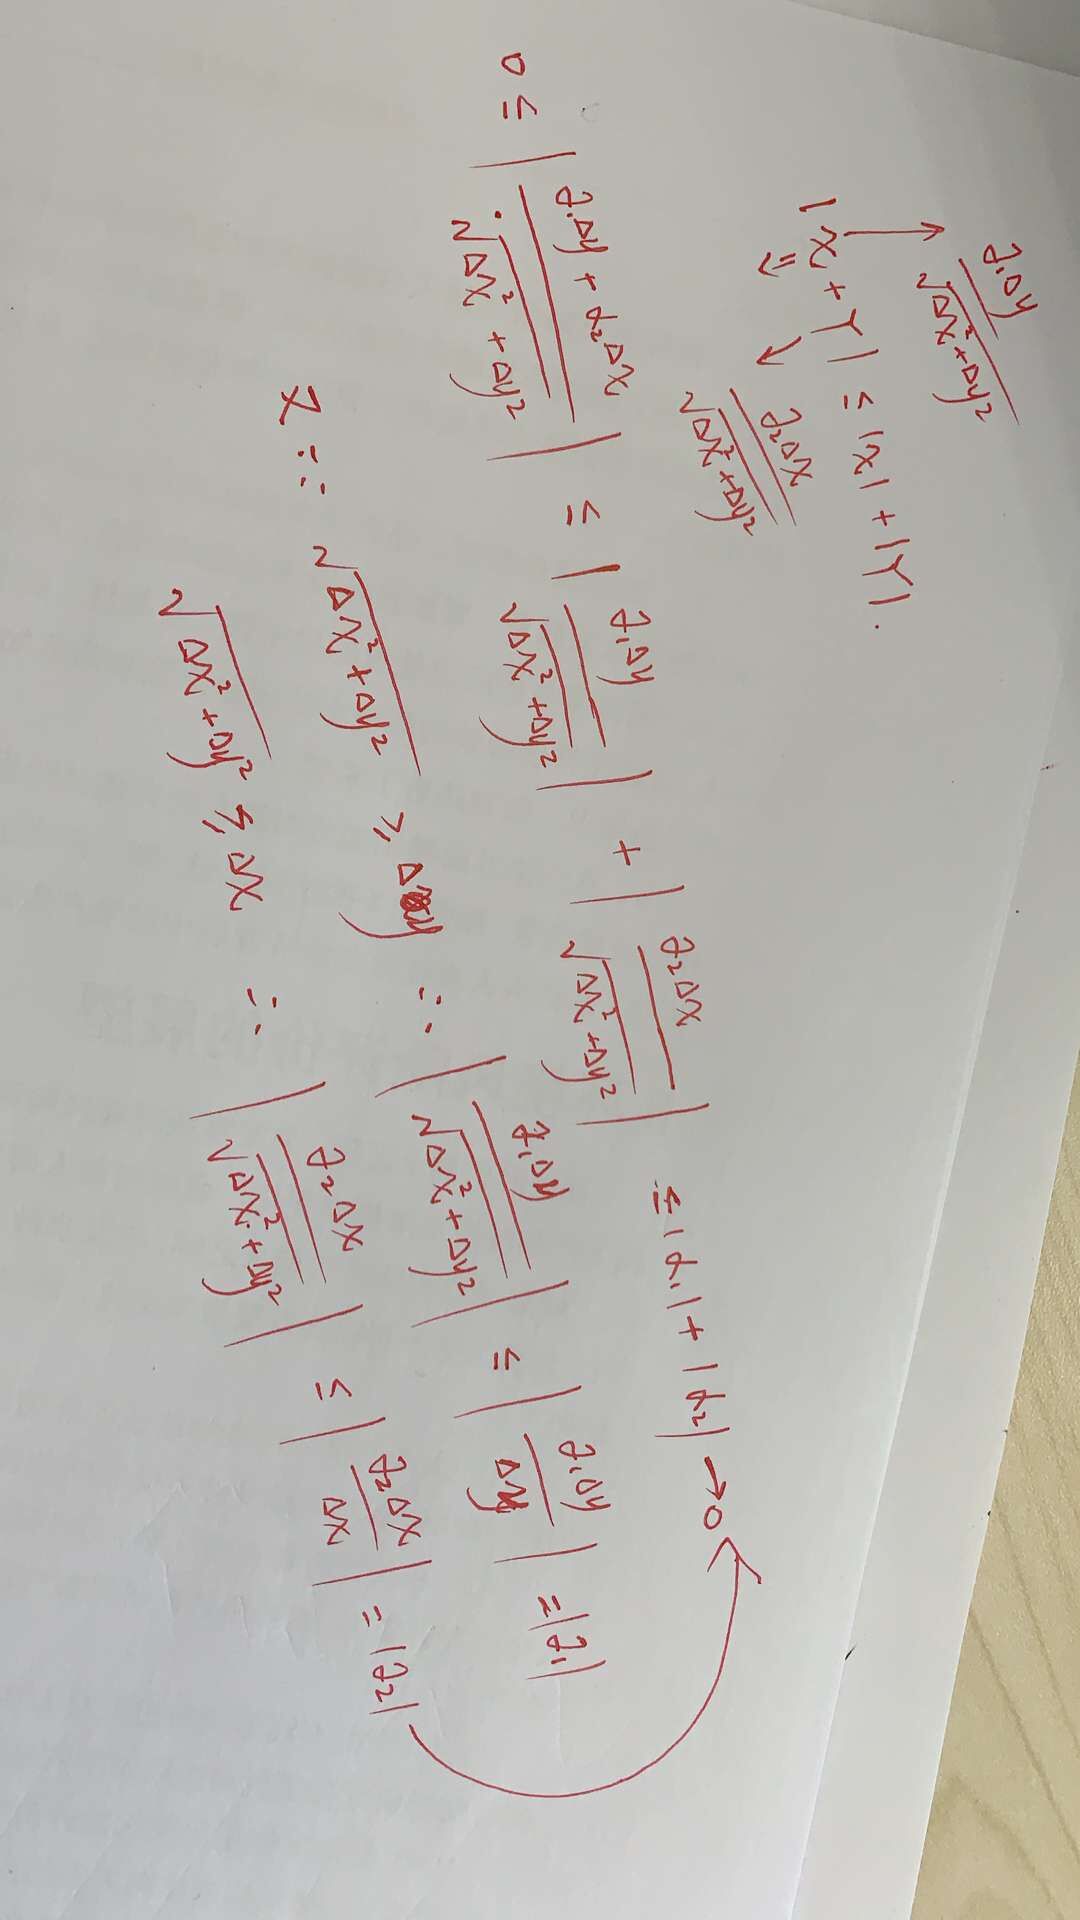 ∂₁Δy / √(Δx²+Δy²)
|x + Y| ≤ |x| + |Y|.
∂₂Δx / √(Δx²+Δy²)
0 ≤ | (∂₁Δy + α₂Δx) / √(Δx²+Δy²) | ≤ | ∂₁Δy / √(Δx²+Δy²) | + | ∂₂Δx / √(Δx²+Δy²) | ≤ |α₁| + |α₂| → 0
又∵ √(Δx²+Δy²) ≥ Δy ∴ | ∂₁Δy / √(Δx²+Δy²) | ≤ | ∂₁Δy / Δy | = |∂₁|
√(Δx²+Δy²) ≥ Δx ∴ | ∂₂Δx / √(Δx²+Δy²) | ≤ | ∂₂Δx / Δx | = |∂₂|